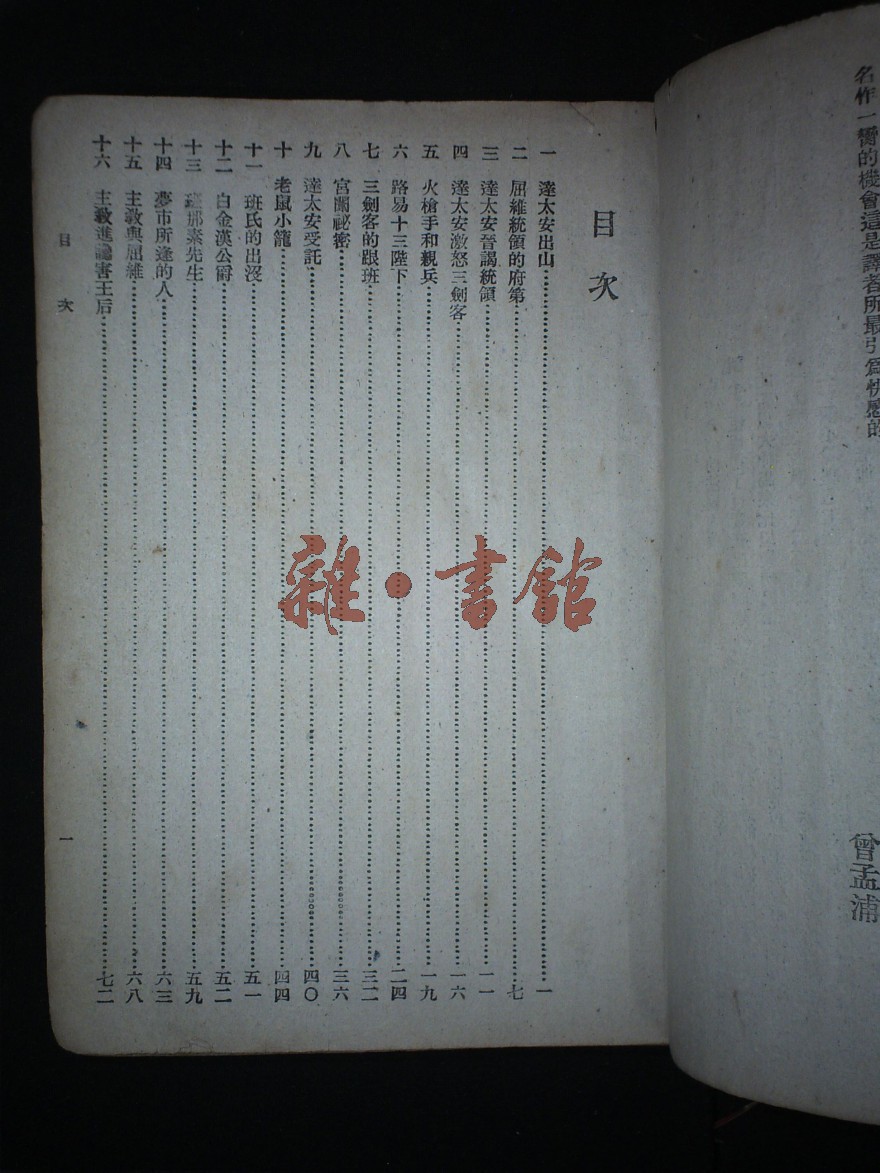 名作一臠的機會這是譯者所最引爲快感的
曾孟浦
目次
一 達太安出山 一
二 屈維統領的府第 七
三 達太安晉謁統領 一一
四 達太安激怒三劍客 一六
五 火槍手和親兵 一九
六 路易十三陛下 二四
七 三劍客的跟班 三二
八 宮闈祕密 三六
九 達太安受託 四〇
十 老鼠小籠 四四
十一 班氏的出沒 五一
十二 白金漢公爵 五二
十三 班那素先生 五九
十四 夢市所逢的人 六三
十五 主敎與屈維 六八
十六 主敎進讒害王后 七二
目次
一
雜·書館